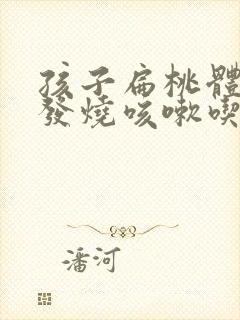 孩子扁桃體
發燒咳嗽喫
潘河